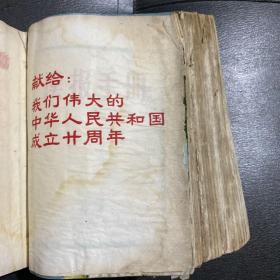 献给：
我们伟大的
中华人民共和国
成立廿周年